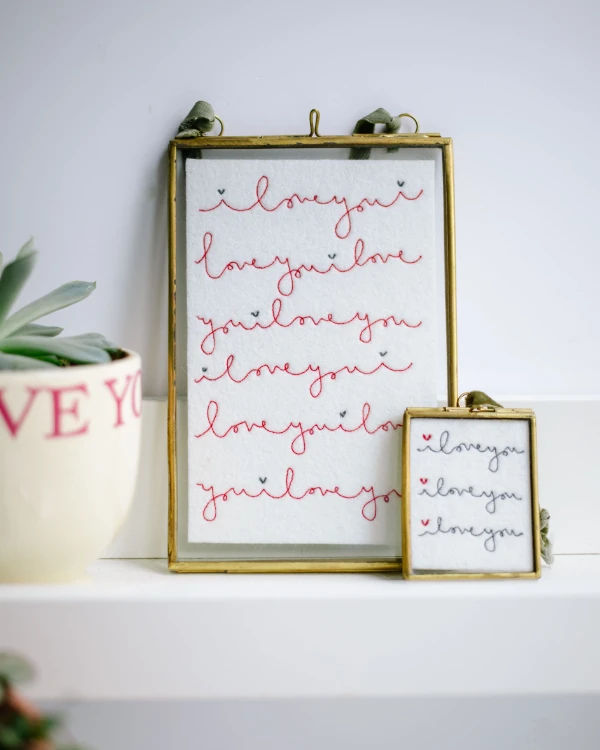 iloveyoui
loveyouilove
youiloveyou
iloveyoui
loveyouilov
youiloveyo
iloveyou
iloveyou
iloveyou
VE YO